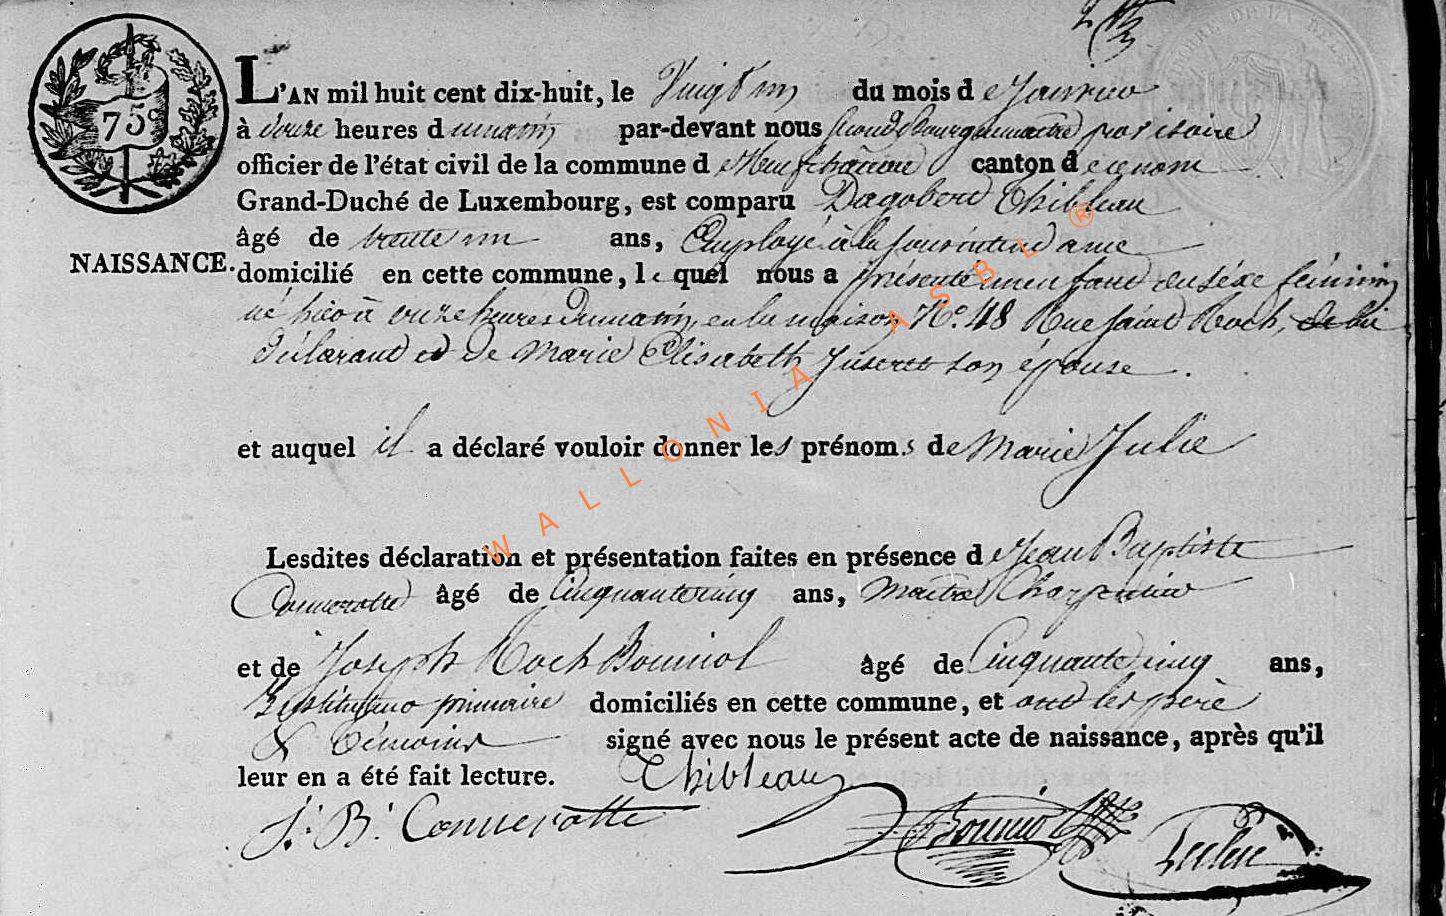 75c
L'AN mil huit cent dix-huit, le Vingt un du mois de Janvier
à onze heures du matin par-devant nous second Bourguemaitre provisoire
officier de l'état civil de la commune de Neufchateau canton de ce nom
Grand-Duché de Luxembourg, est comparu Dagobert Thibleau
âgé de trente un ans, Employé à la sousintendance
NAISSANCE.
domicilié en cette commune, lequel nous a présenté un enfant du séxe féminin
né hier à onze heures du matin, en la maison No. 48 Rue Saint Roch, de lui
déclarant et de Marie Elisabeth Juseret son épouse.
et auquel il a déclaré vouloir donner les prénoms de Marie Julie
Lesdites déclaration et présentation faites en présence de Jean Baptiste
Connerotte âgé de Cinquante cinq ans, maitre Charpentier
et de Joseph Roch Bouniol âgé de Cinquante cinq ans,
Instituteur primaire domiciliés en cette commune, et ont les père
& témoins signé avec nous le présent acte de naissance, après qu'il
leur en a été fait lecture. Thibleau
J. B. Connerotte Bouniol
WALLONIA ASBL ®